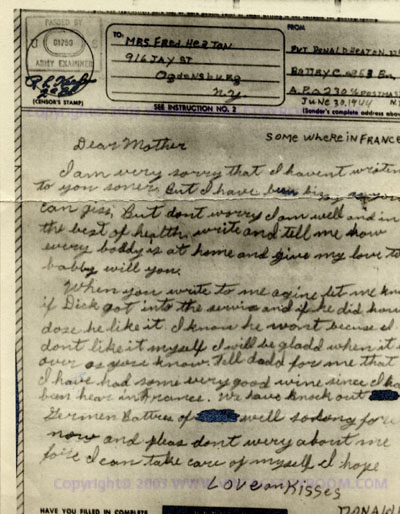 PASSED BY
U S
01793
ARMY EXAMINED
(CENSOR'S STAMP)
TO:
MRS FRED HEATON
916 JAY ST
Ogdensburg
N.Y.
FROM
PVT DONALD HEATON
BATTRY C 253
A.P.O 230 % POSTMAS
JUNE 30, 1944
SEE INSTRUCTION NO. 2
(Sender's complete address abov
SOME WHERE IN FRANCE
Dear Mother
I am very sorry that I havent writen
to you soner. But I have been bizy as you
can giss. But dont worry I am well and in
the best of health. write and tell me how
every boddy is at home and give my love to
bobby will you.
When you write to me agine let me kno
if Dick got into the servis and if he did how
dose he like it I know he wont becuse I
dont like it myself I will be gladd when it
over as youre know. Tell dadd for me that
I have had some very good wine since I ha
ban hear in France. We have knock out
Germen Battres of well so long for
now and pleas dont wery about me
for I can take care of myself I hope
LOVE and Kisses
DONALD
HAVE YOU FILLED IN COMPLETE